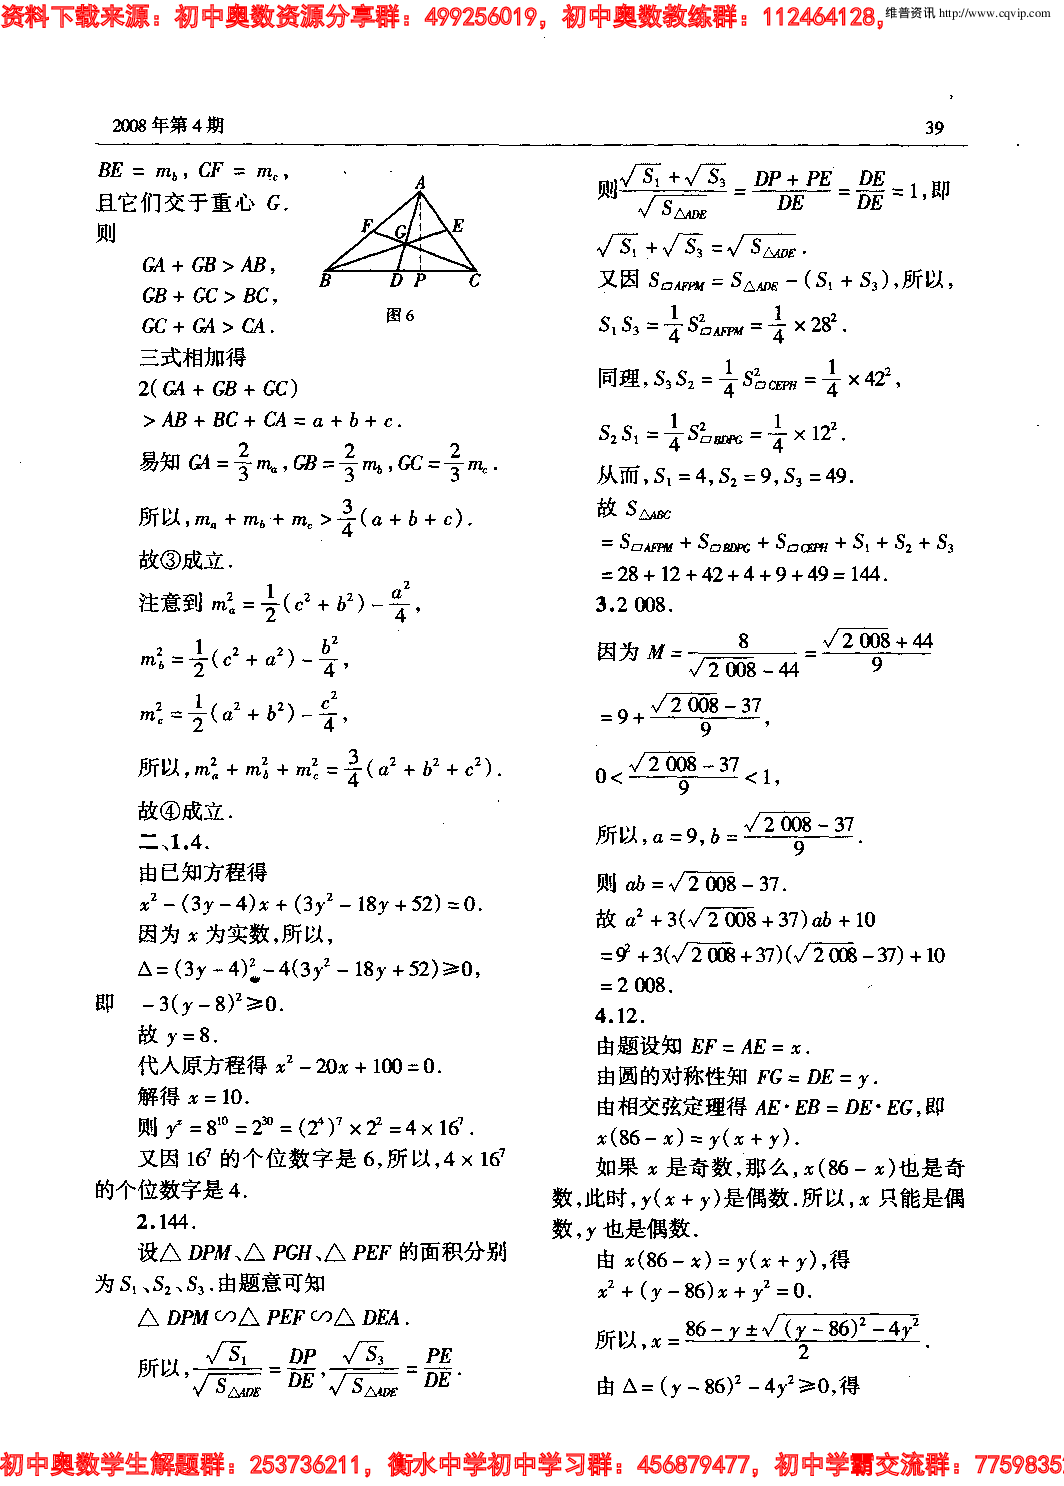 资料下载来源：初中奥数资源分享群：499256019，初中奥数教练群：112464128，
维普资讯 http://www.cqvip.com
2008 年第 4 期
39
BE = m_b , CF = m_c ,
且它们交于重心 G .
则
GA + GB > AB ,
GB + GC > BC ,
GC + GA > CA .
A
F G E
B D P C
图 6
三式相加得
2( GA + GB + GC )
> AB + BC + CA = a + b + c .
易知 GA = 2/3 m_a , GB = 2/3 m_b , GC = 2/3 m_c .
所以, m_a + m_b + m_c > 3/4 ( a + b + c ) .
故③成立 .
注意到 m_a² = 1/2 ( c² + b² ) - a²/4 ,
m_b² = 1/2 ( c² + a² ) - b²/4 ,
m_c² = 1/2 ( a² + b² ) - c²/4 ,
所以, m_a² + m_b² + m_c² = 3/4 ( a² + b² + c² ) .
故④成立 .
二、1.4.
由已知方程得
x² - (3y - 4)x + (3y² - 18y + 52) = 0.
因为 x 为实数,所以,
Δ = (3y - 4)² - 4(3y² - 18y + 52) ≥ 0,
即 - 3( y - 8)² ≥ 0.
故 y = 8.
代入原方程得 x² - 20x + 100 = 0.
解得 x = 10.
则 y^x = 8^10 = 2^30 = (2⁴)⁷ × 2² = 4 × 16⁷ .
又因 16⁷ 的个位数字是 6,所以,4 × 16⁷
的个位数字是 4.
2.144.
设△ DPM、△ PGH、△ PEF 的面积分别
为 S₁、S₂、S₃ .由题意可知
△ DPM ∽△ PEF ∽△ DEA .
所以, √S₁/√S_△ADE = DP/DE , √S₃/√S_△ADE = PE/DE .
则 (√S₁ + √S₃)/√S_△ADE = (DP + PE)/DE = DE/DE = 1,即
√S₁ + √S₃ = √S_△ADE .
又因 S_▱AFPM = S_△ADE - ( S₁ + S₃ ),所以,
S₁ S₃ = 1/4 S²_▱AFPM = 1/4 × 28² .
同理, S₃ S₂ = 1/4 S²_▱CEPH = 1/4 × 42² ,
S₂ S₁ = 1/4 S²_▱BDPG = 1/4 × 12² .
从而, S₁ = 4, S₂ = 9, S₃ = 49.
故 S_△ABC
= S_▱AFPM + S_▱BDPG + S_▱CEPH + S₁ + S₂ + S₃
= 28 + 12 + 42 + 4 + 9 + 49 = 144.
3.2 008.
因为 M = 8/(√2 008 - 44) = (√2 008 + 44)/9
= 9 + (√2 008 - 37)/9 ,
0 < (√2 008 - 37)/9 < 1,
所以, a = 9, b = (√2 008 - 37)/9 .
则 ab = √2 008 - 37.
故 a² + 3(√2 008 + 37) ab + 10
= 9² + 3(√2 008 + 37)(√2 008 - 37) + 10
= 2 008.
4.12.
由题设知 EF = AE = x .
由圆的对称性知 FG = DE = y .
由相交弦定理得 AE · EB = DE · EG ,即
x(86 - x) = y( x + y ) .
如果 x 是奇数,那么, x(86 - x)也是奇
数,此时, y( x + y )是偶数.所以, x 只能是偶
数, y 也是偶数.
由 x(86 - x) = y( x + y ),得
x² + ( y - 86)x + y² = 0.
所以, x = (86 - y ± √(( y - 86)² - 4y²))/2 .
由 Δ = ( y - 86)² - 4y² ≥ 0,得
初中奥数学生解题群：253736211，衡水中学初中学习群：456879477，初中学霸交流群：7759835